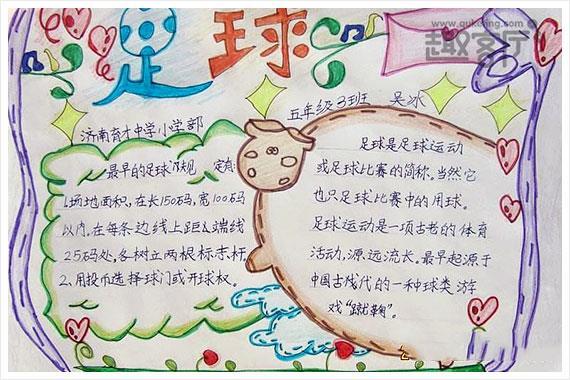 足球
www.quketing.com
趣客厅
济南育才中学小学部
五年级3班 吴冰
最早的足球规 定有:
1.场地面积,在长150码,宽100码
以内,在每条边线上距以端线
25码处,各树立两根标志杆
2.用投币选择球门或开球权。
足球是足球运动
或足球比赛的简称。当然它
也只足球比赛中的用球。
足球运动是一项古老的体育
活动,源远流长。最早起源于
中国古代的一种球类游
戏“蹴鞠”。